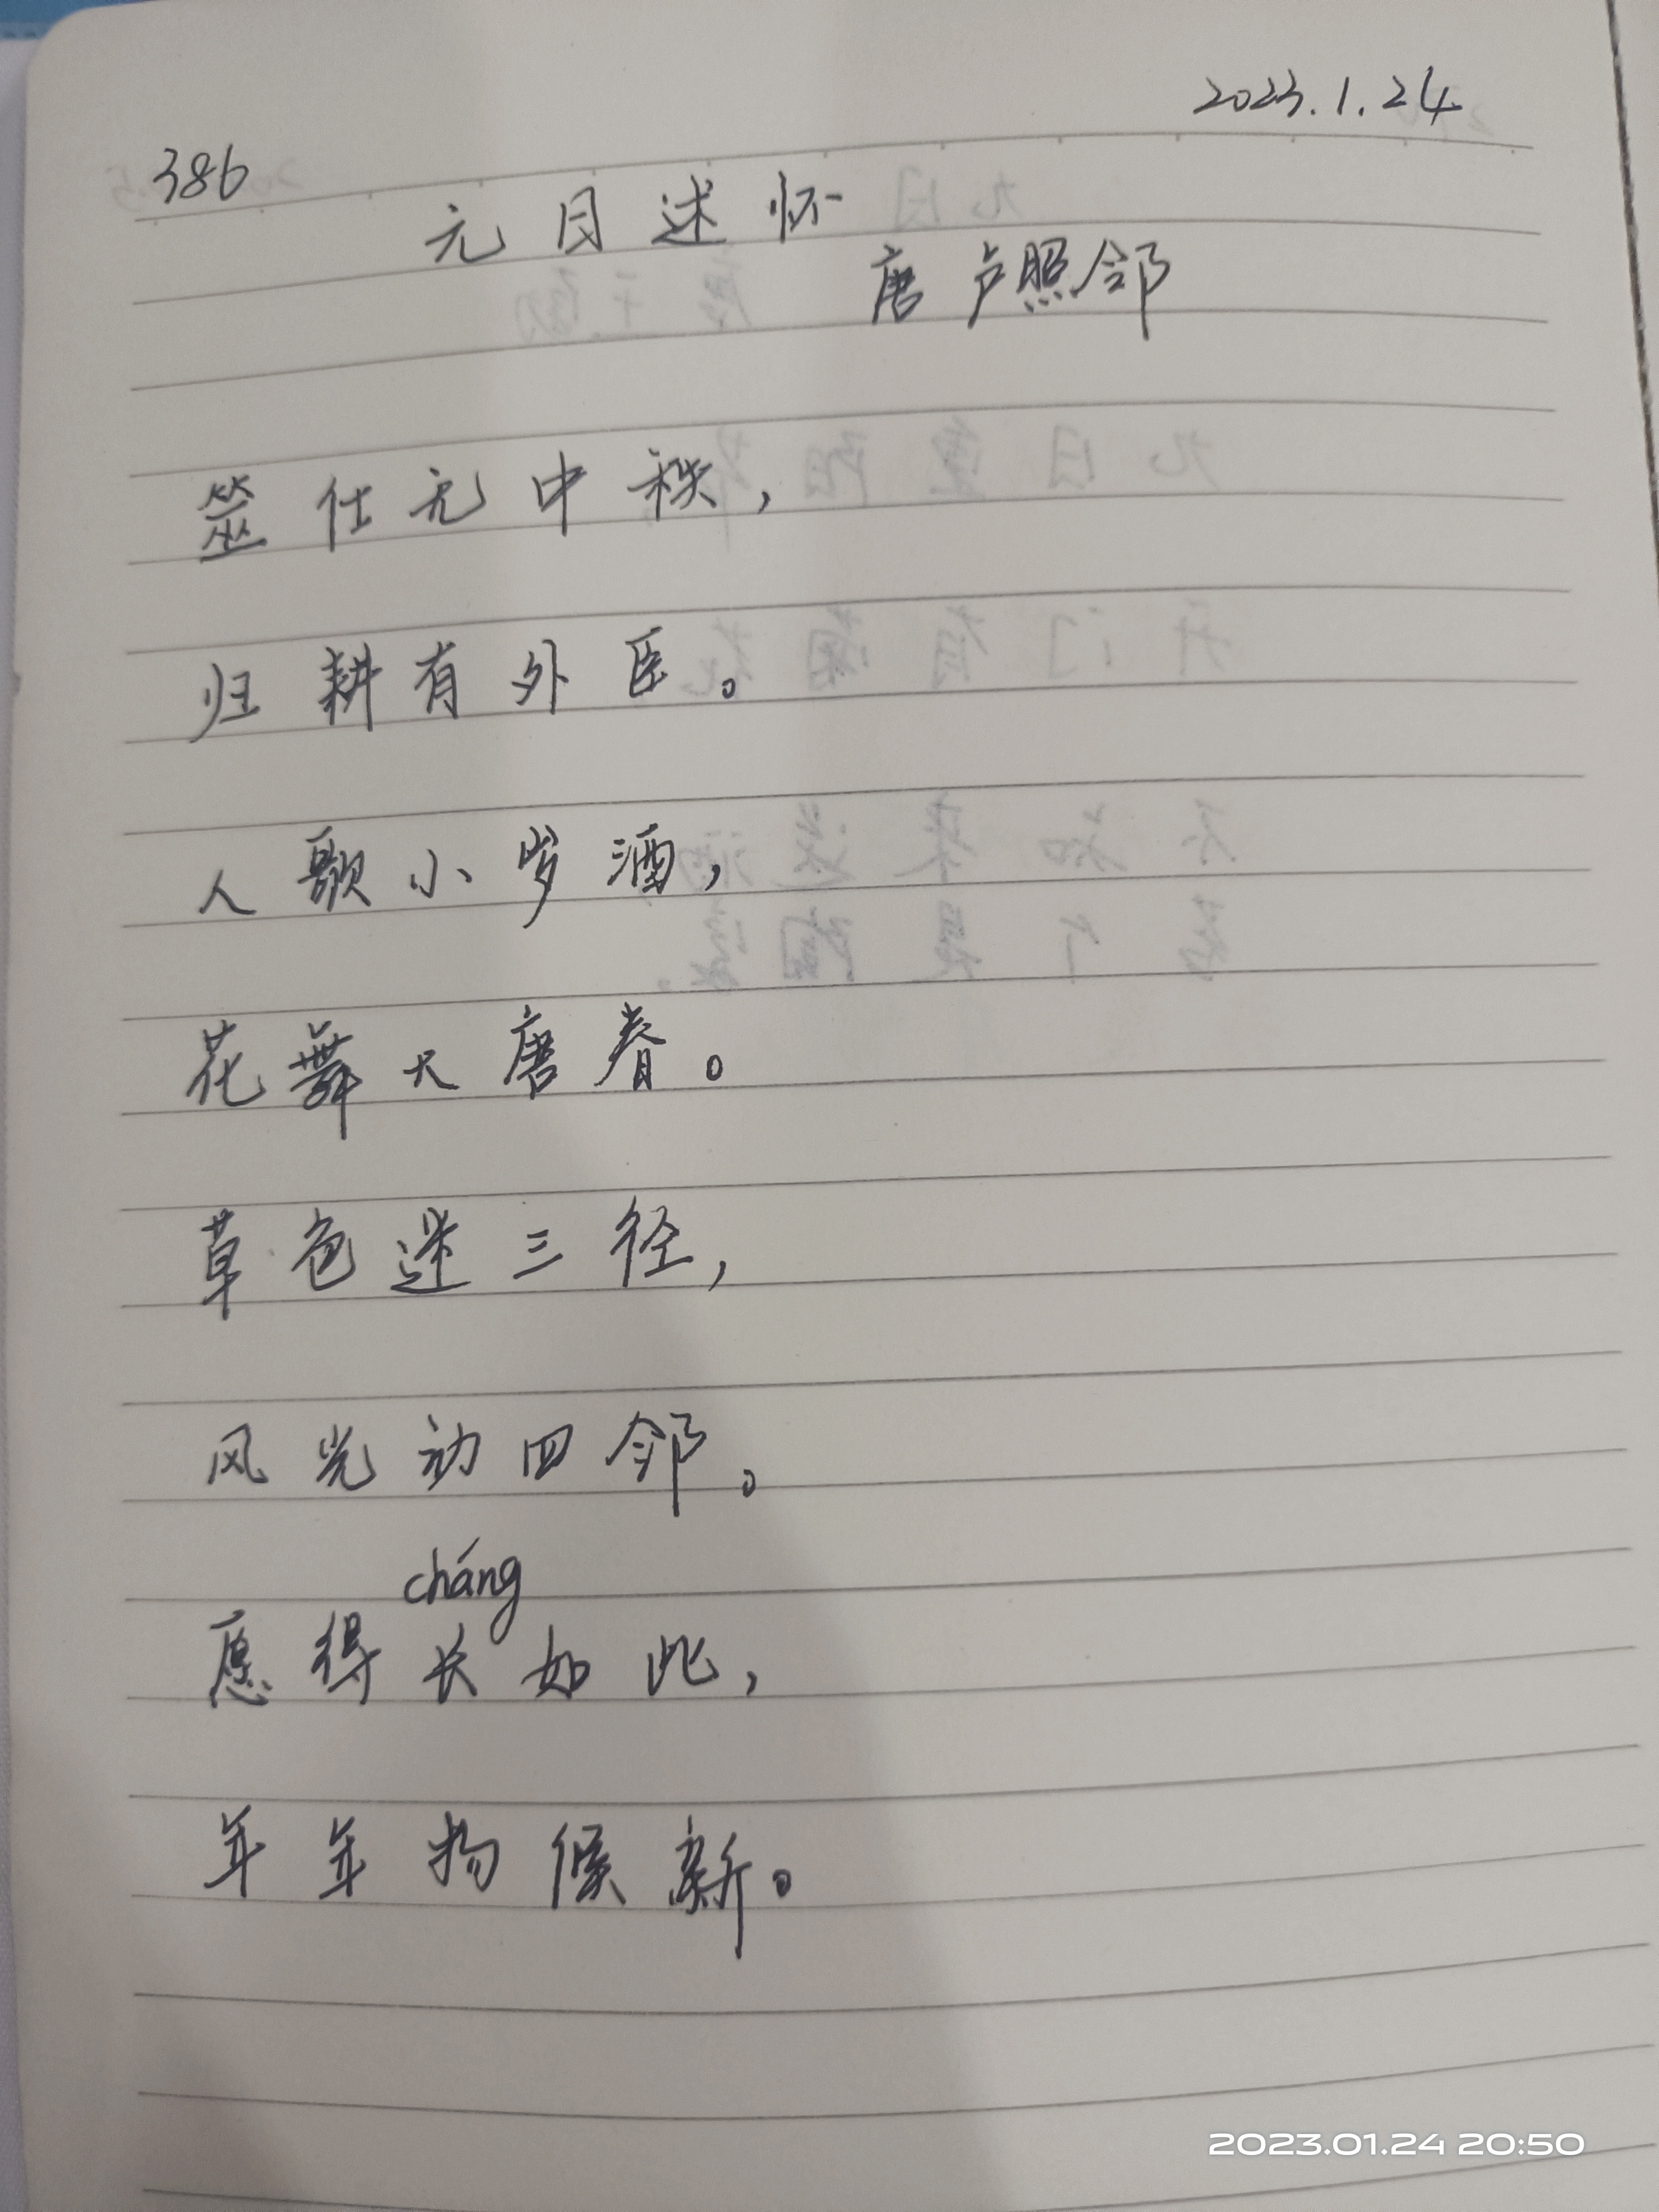 2023.1.24
386
元日述怀
唐 卢照邻
筮仕无中秩，
归耕有外臣。
人歌小岁酒，
花舞大唐春。
草色迷三径，
风光动四邻。
cháng
愿得长如此，
年年物候新。
2023.01.24 20:50